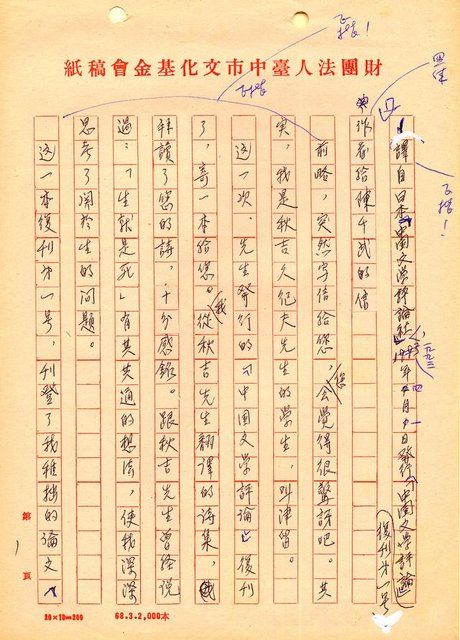 財團法人臺中市文化基金會稿紙
譯自日本中國文學評論社一九九三年四月一日發行「中國文學評論」復刊第一號
作者給陳千武的信
前略,突然寫信給您,您會覺得很驚訝吧。其
實,我是秋吉久紀夫先生的學生,叫津留。
這一次,先生發行的「中國文學評論」復刊
了,寄一本給您。我從秋吉先生翻譯的詩集,
拜讀了您的詩,十分感銘。跟秋吉先生曾經說
過:「生就是死」有其共通的想法,使我深深
思考了關於生的問題。
這一本復刊第一號,刊登了我稚拙的論文
第 1 頁
20×10=200
68.3.2,000本